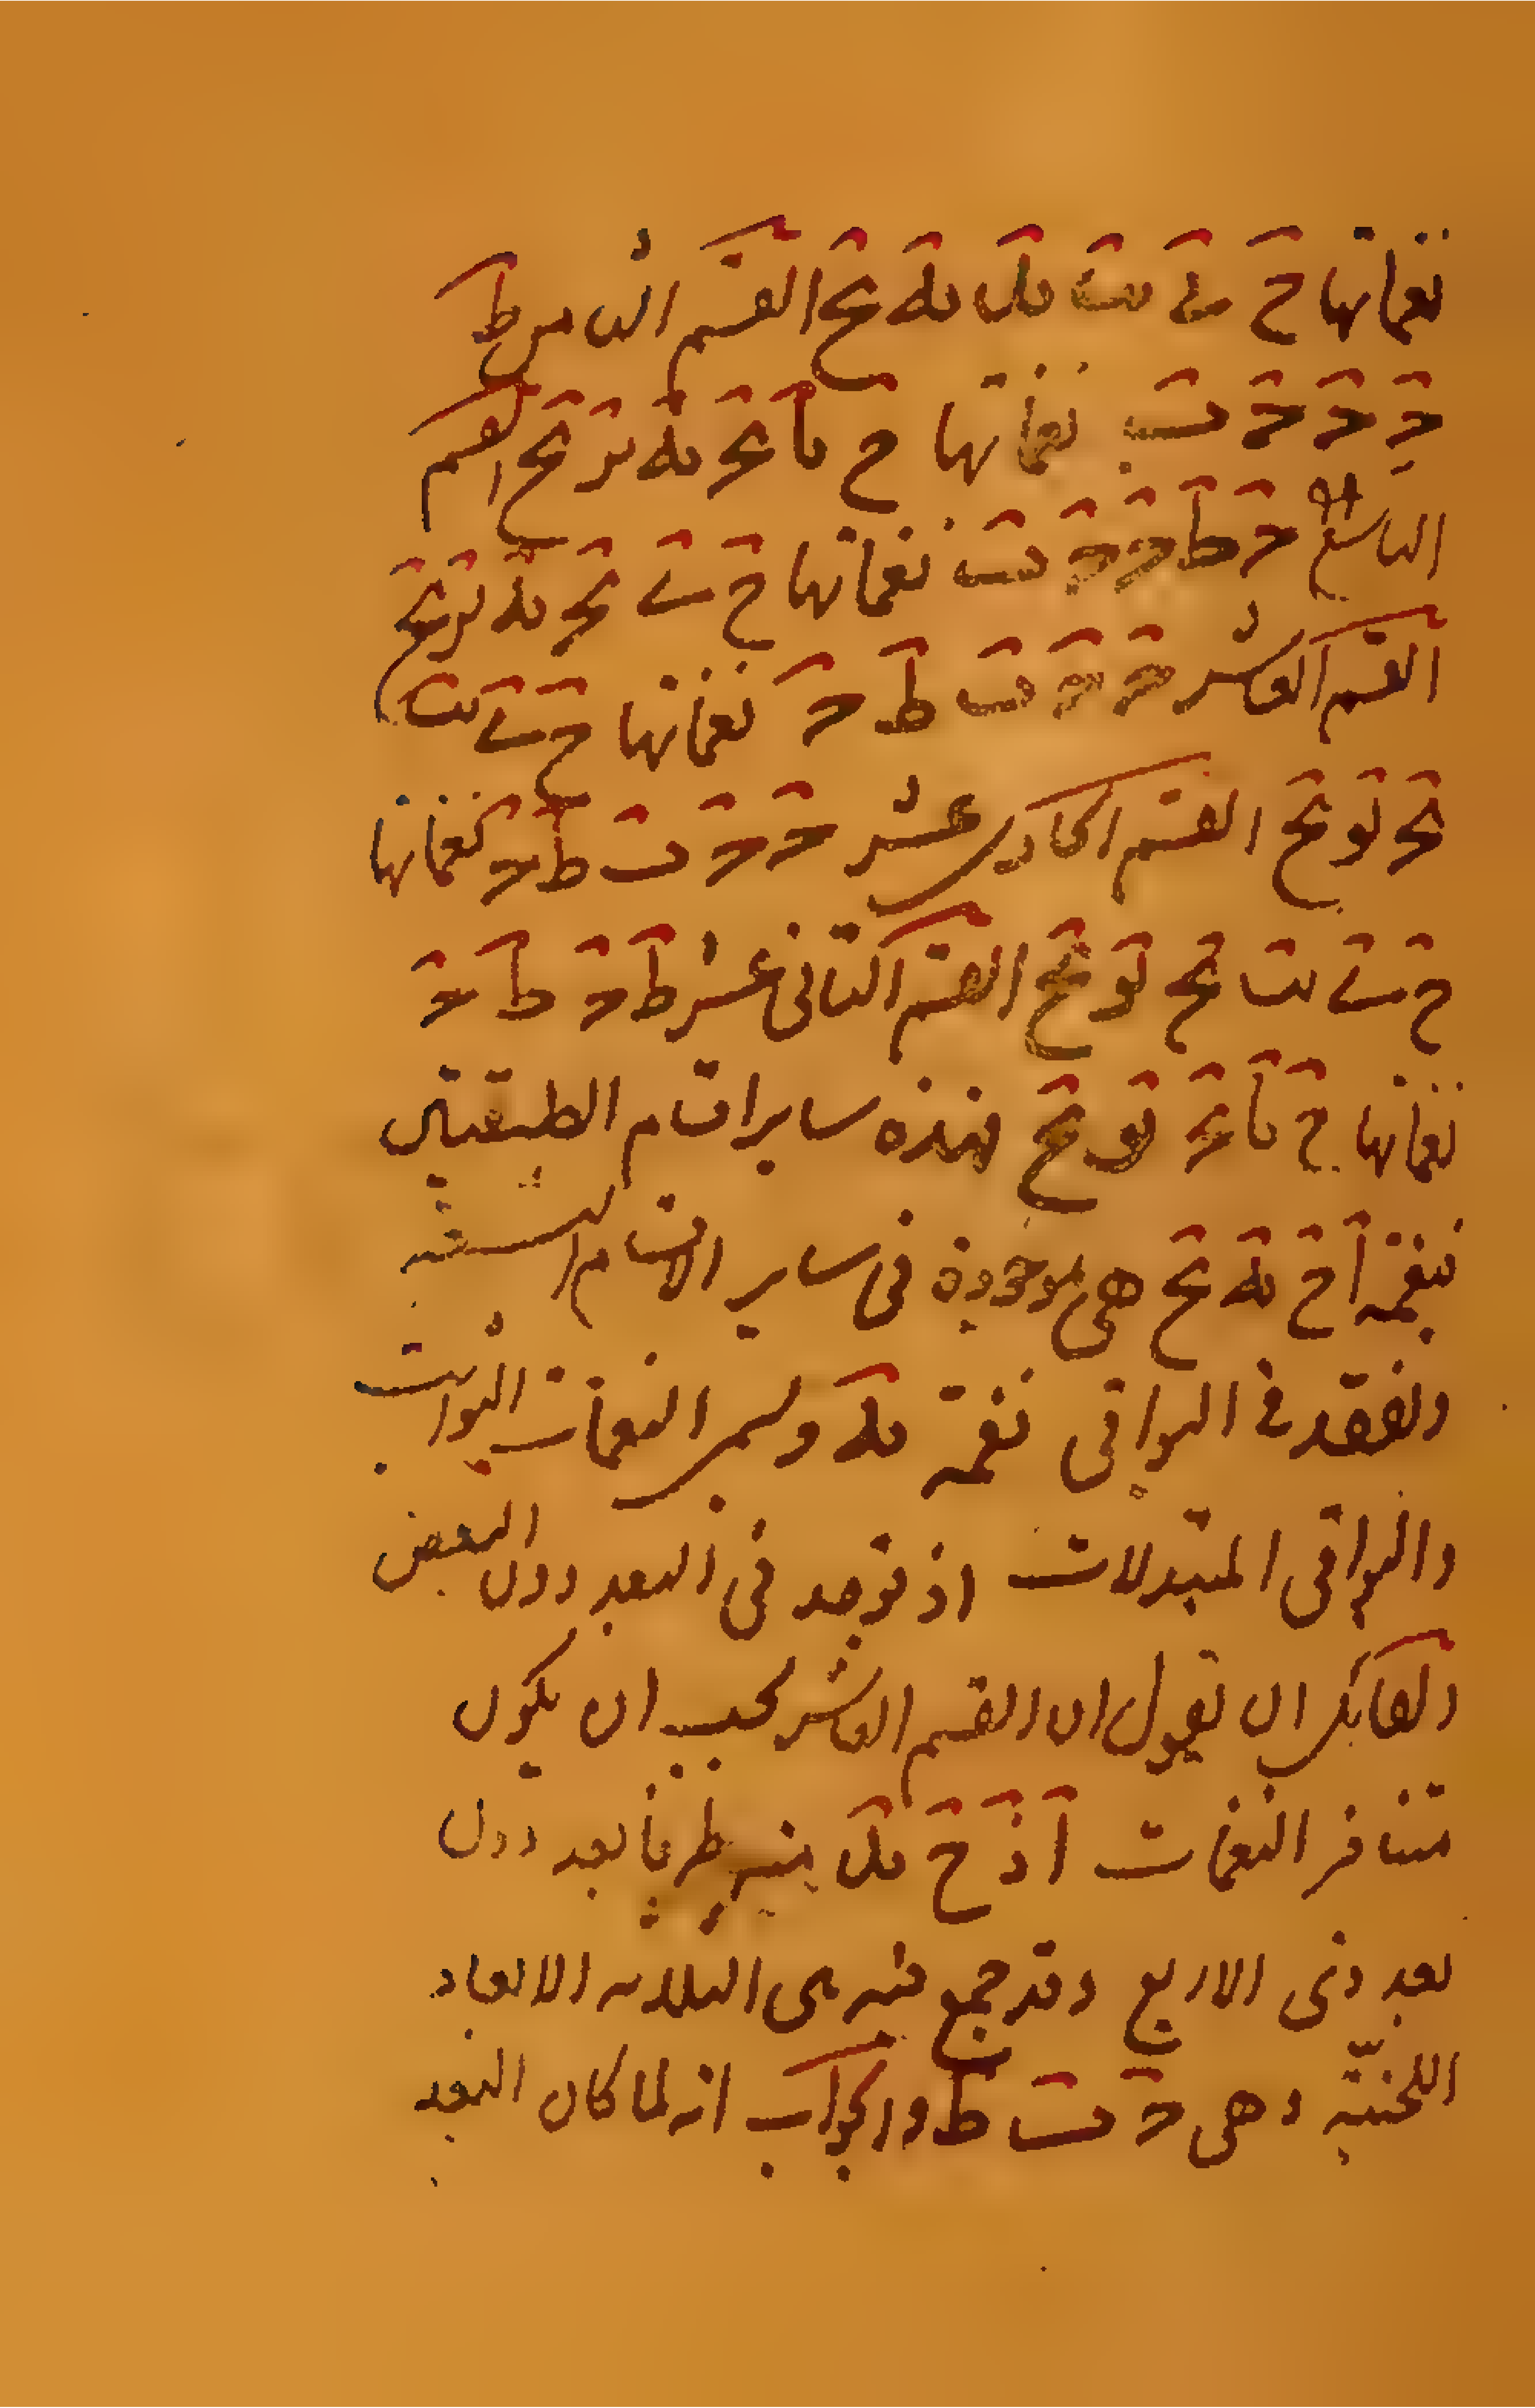 نغماتها ح ى يب يد يه يح القسم الثامن ط
ج ج ج ب نغماتها ح يا يج يه يز يح القسم
التاسع ج ط ج ج ب نغماتها ح ى يج يه يز يح
القسم العاشر ج ج ب ط ج نغماتها ح ى يب
يج يو يح القسم الحادى عشر ج ج ب ط ج نغماتها
ح ى يب يج يو يح القسم الثانى عشر ط ج ط ج
نغماتها ح يا يج يو يح فهذه ساير اقسام الطبقة
فنغمة ا ح يه يح هى موجودة فى ساير الاقسام
وتفقد فى البواقى نغمة يه ولسم النغمات الثوابت
والبواقى المتبدلات اذ توجد فى البعد دون البعض
ولقايل ان يقول ان القسم العاشر يجب ان يكون
متنافر النغمات ا د ح يد بين طرفا بعد دون
بعد ذى الاربع وقد جمع فيه بين الثلاثه الابعاد
اللحنية وهى ج ب ط والجواب انه لما كان البعد